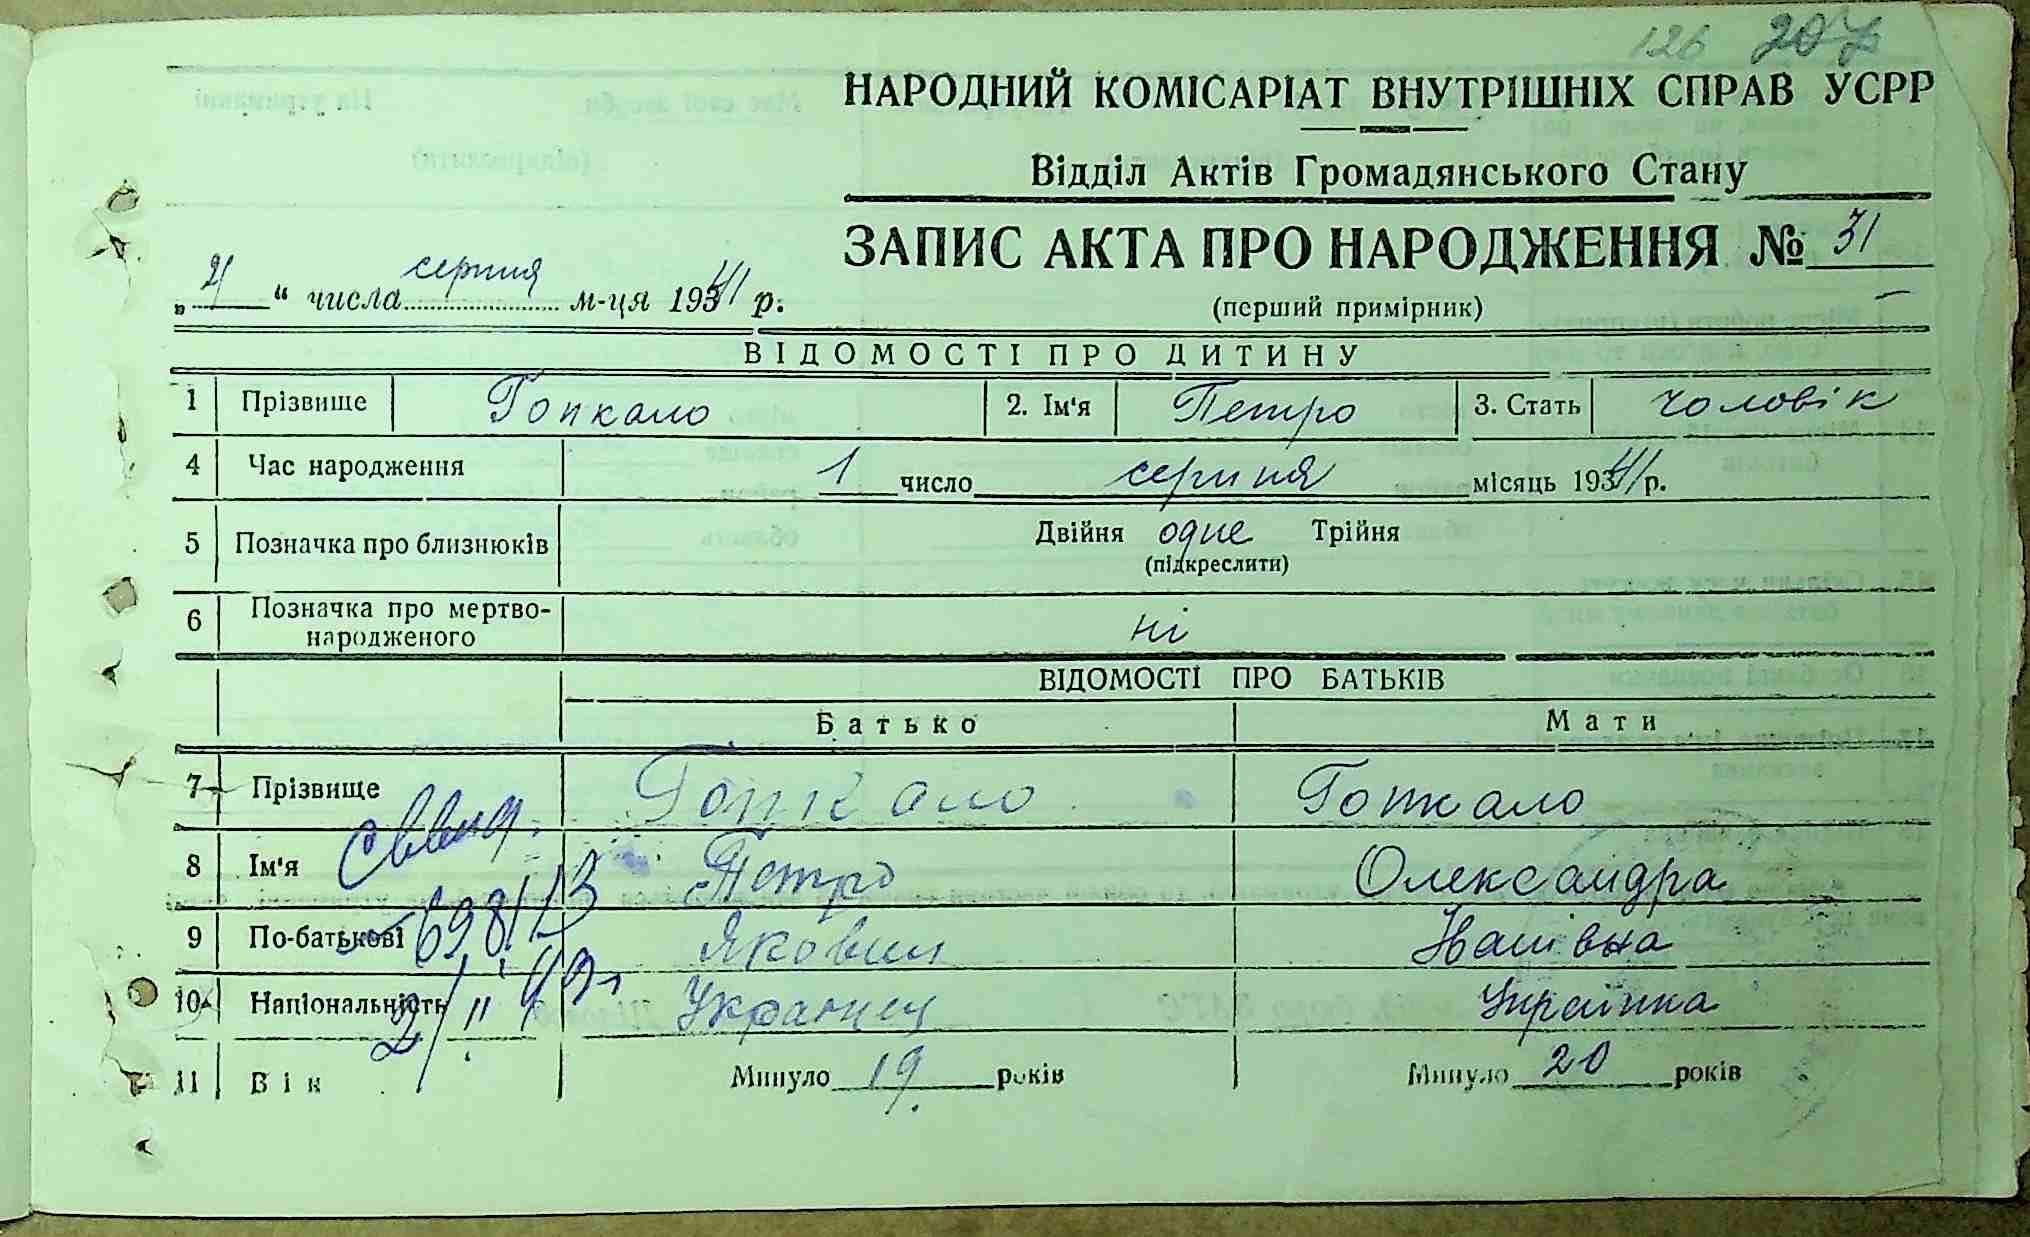 126 207
НАРОДНИЙ КОМІСАРІАТ ВНУТРІШНІХ СПРАВ УСРР
Відділ Актів Громадянського Стану
ЗАПИС АКТА ПРО НАРОДЖЕННЯ № 31
„ “ числа серпня м-ця 1941 р.
(перший примірник)
ВІДОМОСТІ ПРО ДИТИНУ
1 Прізвище Гопкало 2. Ім'я Петро 3. Стать чоловік
4 Час народження 1 число серпня місяць 1941 р.
5 Позначка про близнюків Двійня одне Трійня
(підкреслити)
6 Позначка про мертво-
народженого ні
ВІДОМОСТІ ПРО БАТЬКІВ
Батько Мати
7 Прізвище Гопкало Гопкало
8 Ім'я Петро Олександра
9 По-батькові Якович
10 Національність Украинец Українка
11 Вік Минуло 19 років Минуло 20 років